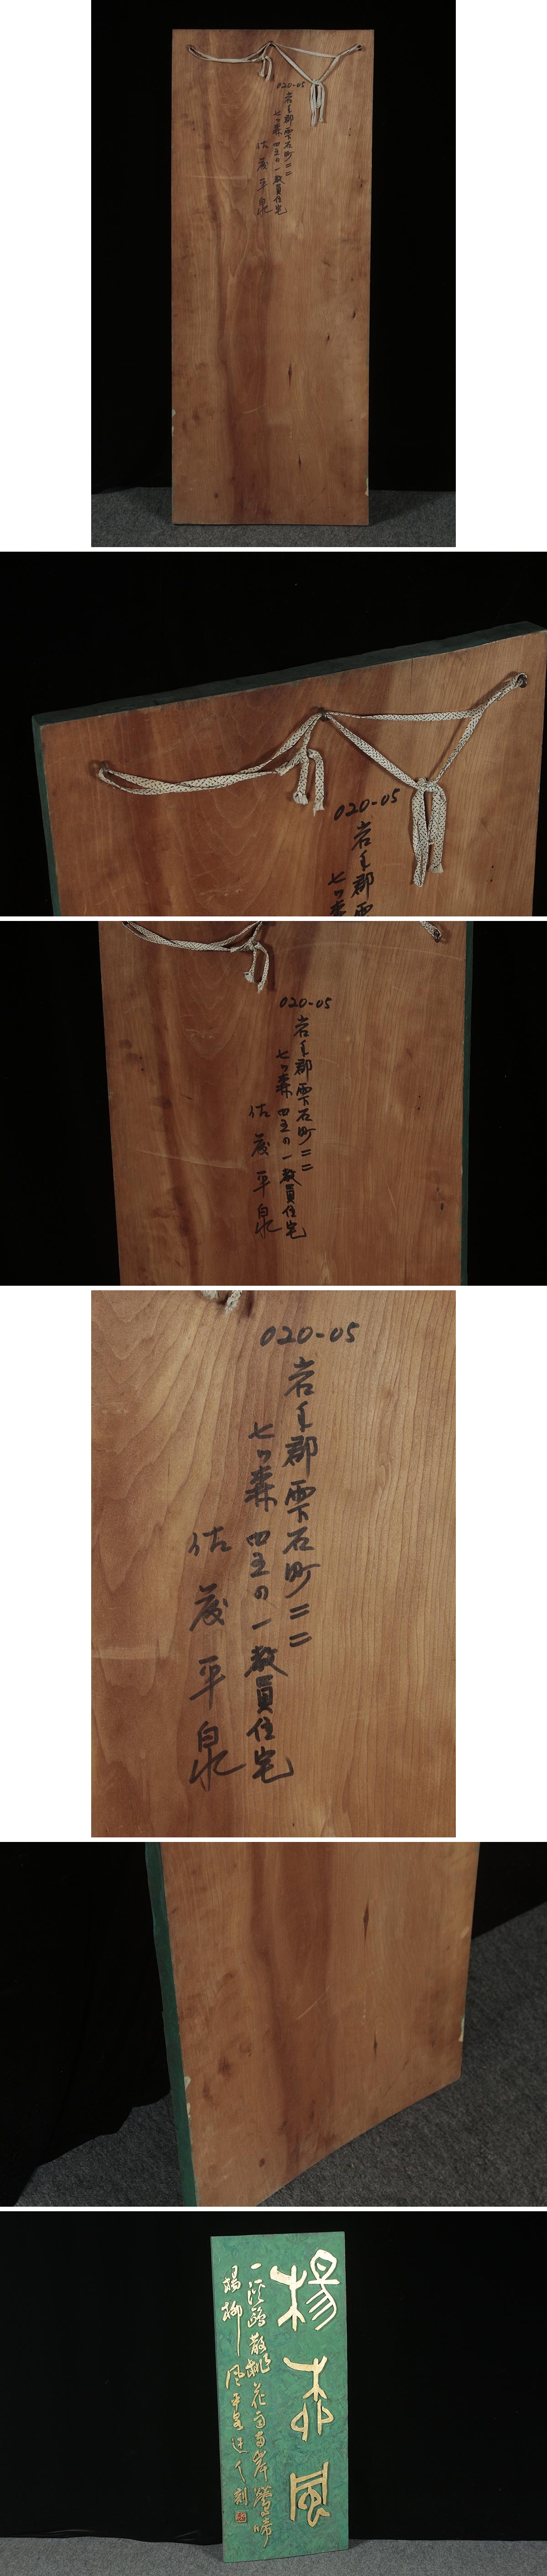 020-05
岩手郡雫石町二二
七ツ森四五の一教員住宅
佐藤平泉
020-05
岩手郡雫
七ツ森
020-05
岩手郡雫石町二二
七ツ森四五の一教員住宅
佐藤平泉
020-05
岩手郡雫石町二二
七ツ森四五の一教員住宅
佐藤平泉
楊柳風
一渓散桃花雨両岸鶯啼
楊柳風平泉人刻